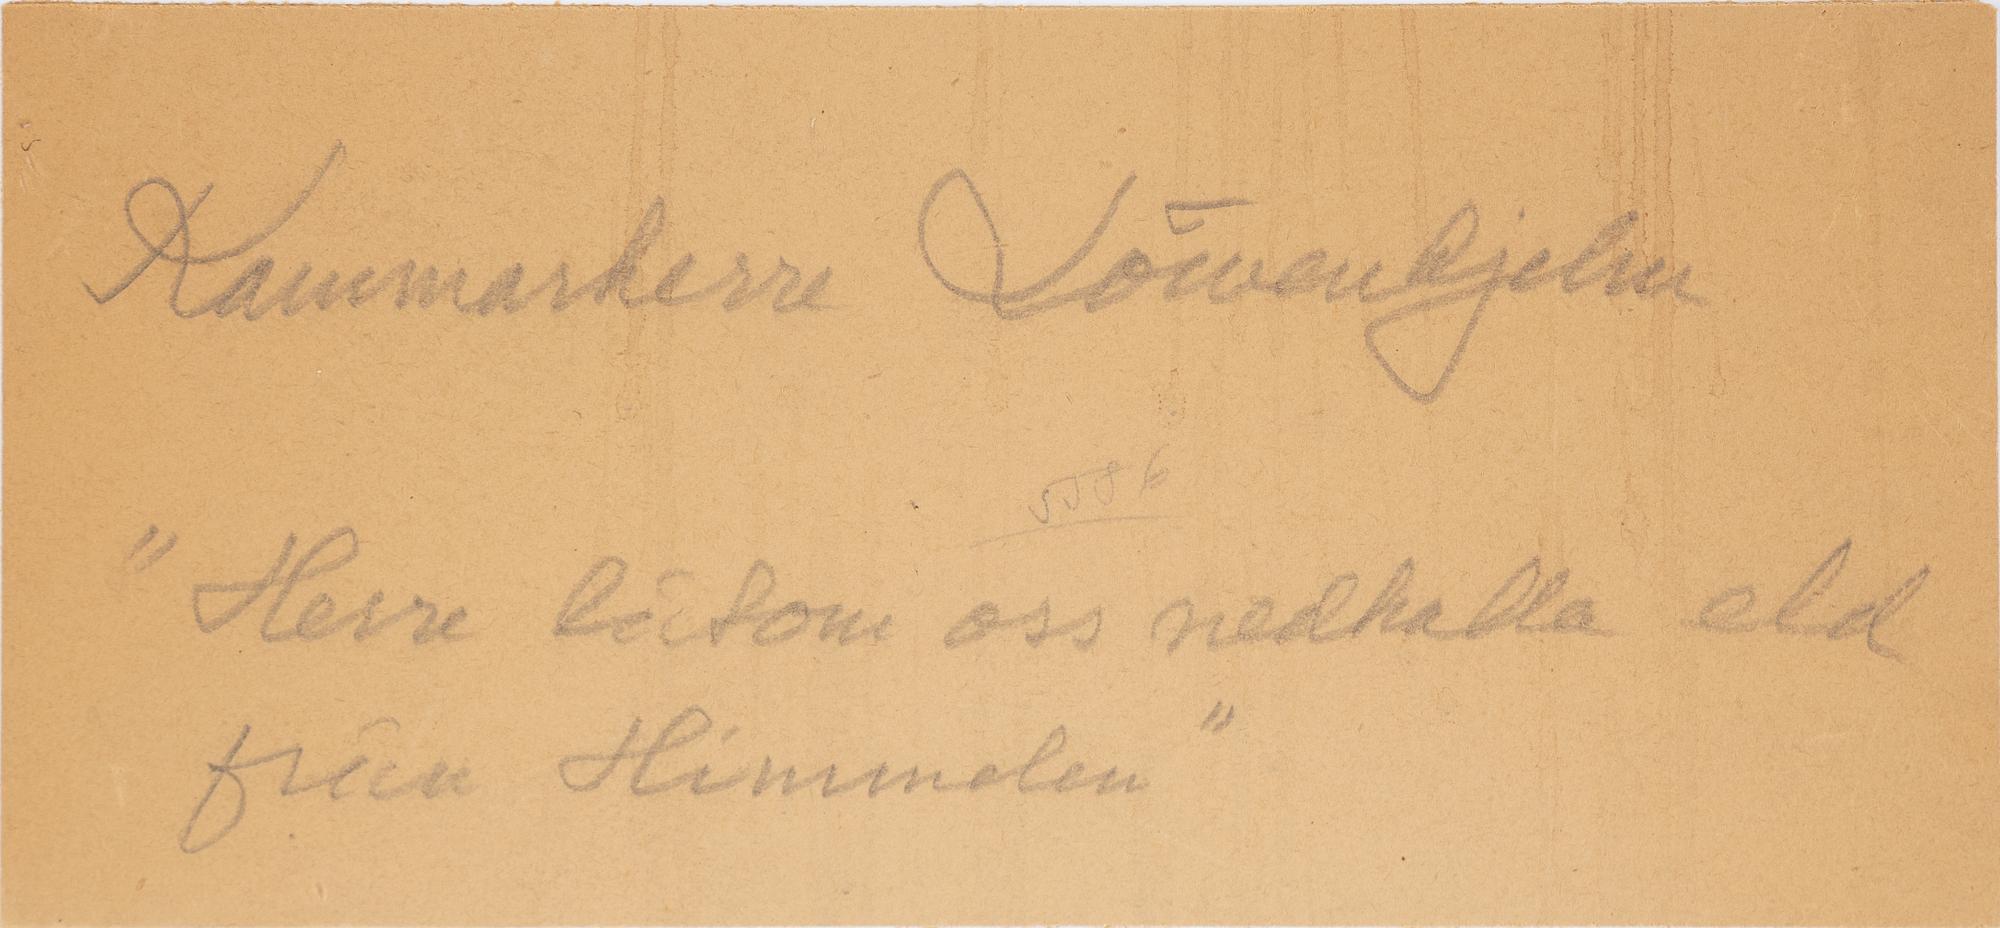 Kammarherre Löwenhjelm
5586
"Herre låtom oss nedkalla eld
från Himmelen"